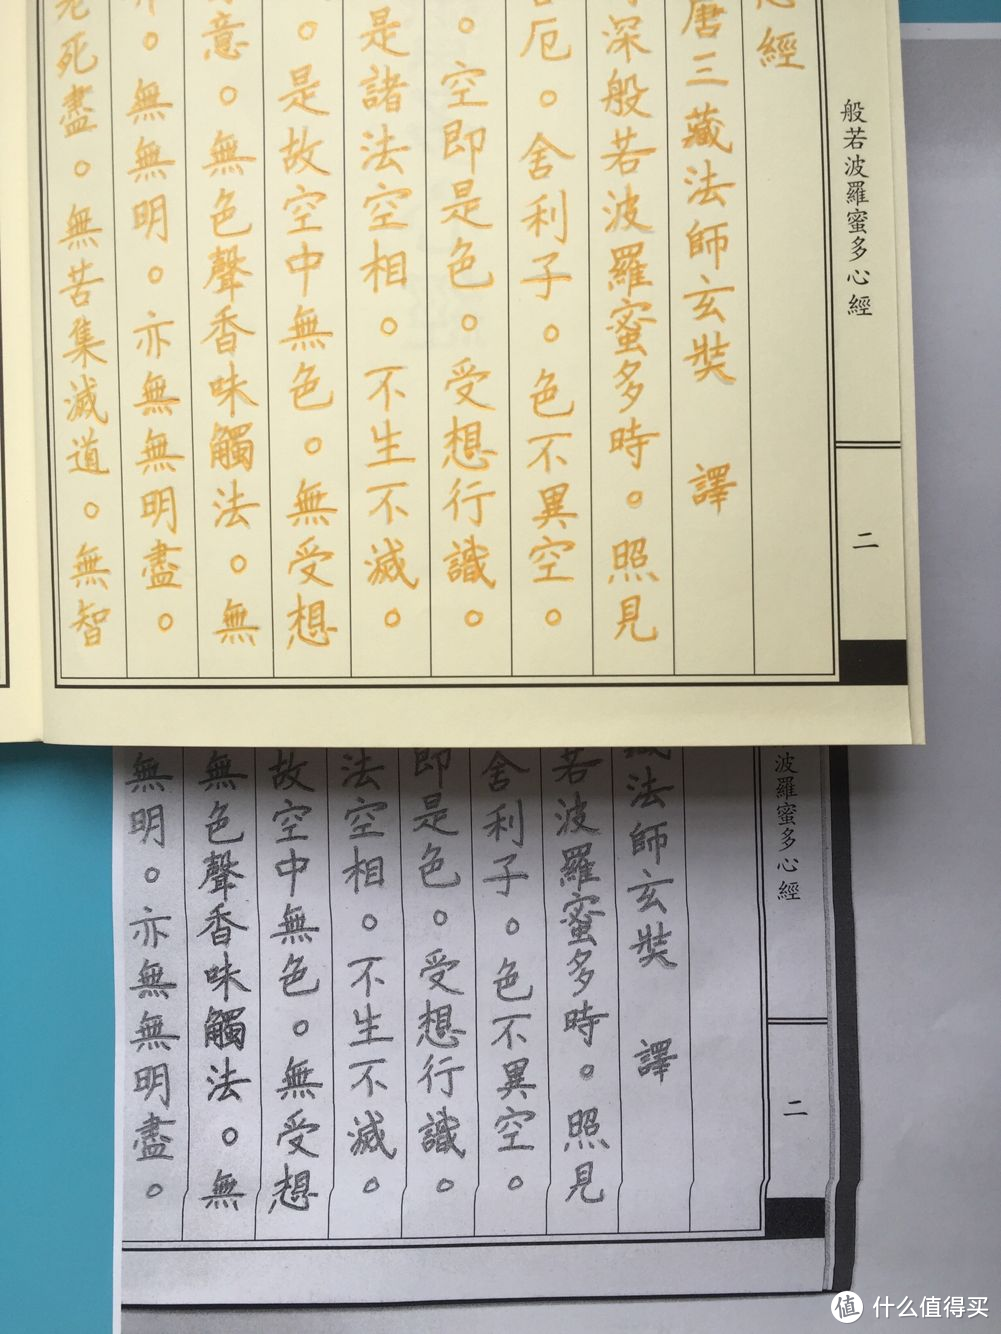 般若波羅蜜多心經
二
經
唐三藏法師玄奘 譯
深般若波羅蜜多時。照見
厄。舍利子。色不異空。
。空即是色。受想行識。
是諸法空相。不生不滅。
。是故空中無色。無受想
意。無色聲香味觸法。無
。無無明。亦無無明盡。
死盡。無苦集滅道。無智
波羅蜜多心經
二
法師玄奘 譯
若波羅蜜多時。照見
舍利子。色不異空。
即是色。受想行識。
法空相。不生不滅。
故空中無色。無受想
無色聲香味觸法。無
無明。亦無無明盡。
值 什么值得买